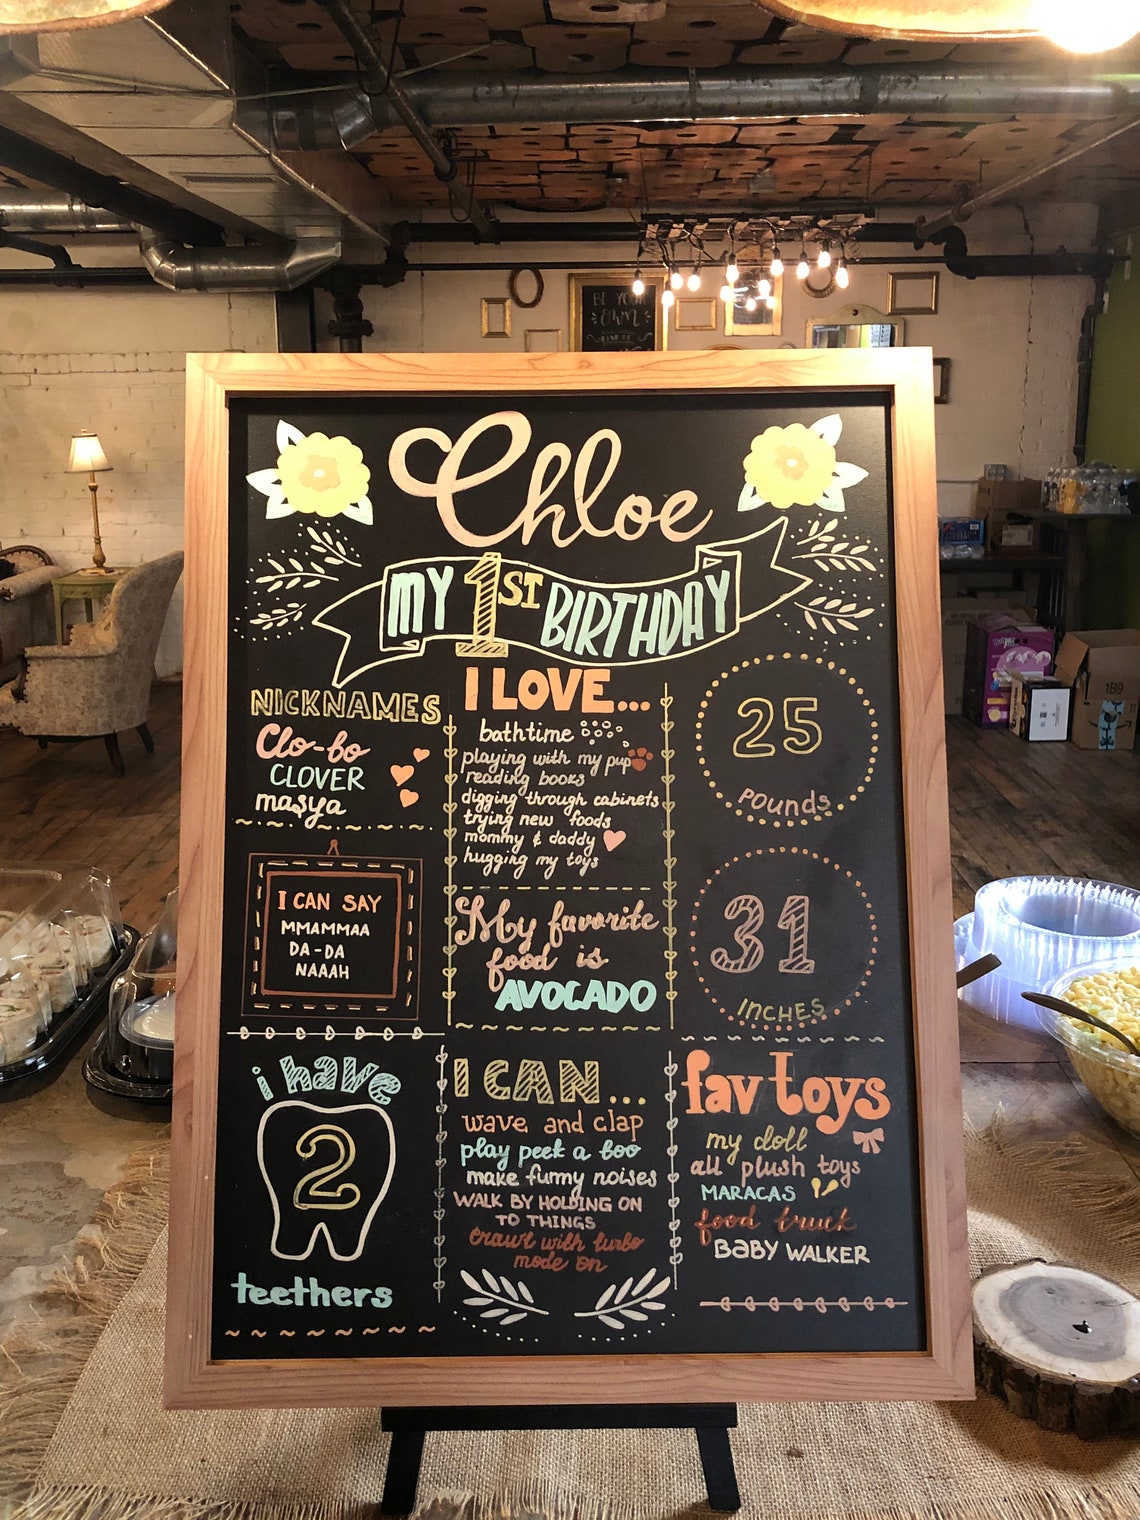 BE YOUR
OWN
KIND OF
Chloe
MY 1ST BIRTHDAY
NICKNAMES
Clo-bo
CLOVER
maşya
I LOVE...
bathtime
playing with my pup
reading books
digging through cabinets
trying new foods
mommy & daddy
hugging my toys
25
Pounds
I CAN SAY
MMAMMAA
DA-DA
NAAAH
My favorite
food is
AVOCADO
31
INCHES
i have
2
teethers
I CAN...
wave and clap
play peek a boo
make funny noises
WALK BY HOLDING ON
TO THINGS
Crawl with turbo
mode on
fav toys
my doll
all plush toys
MARACAS
food truck
BABY WALKER